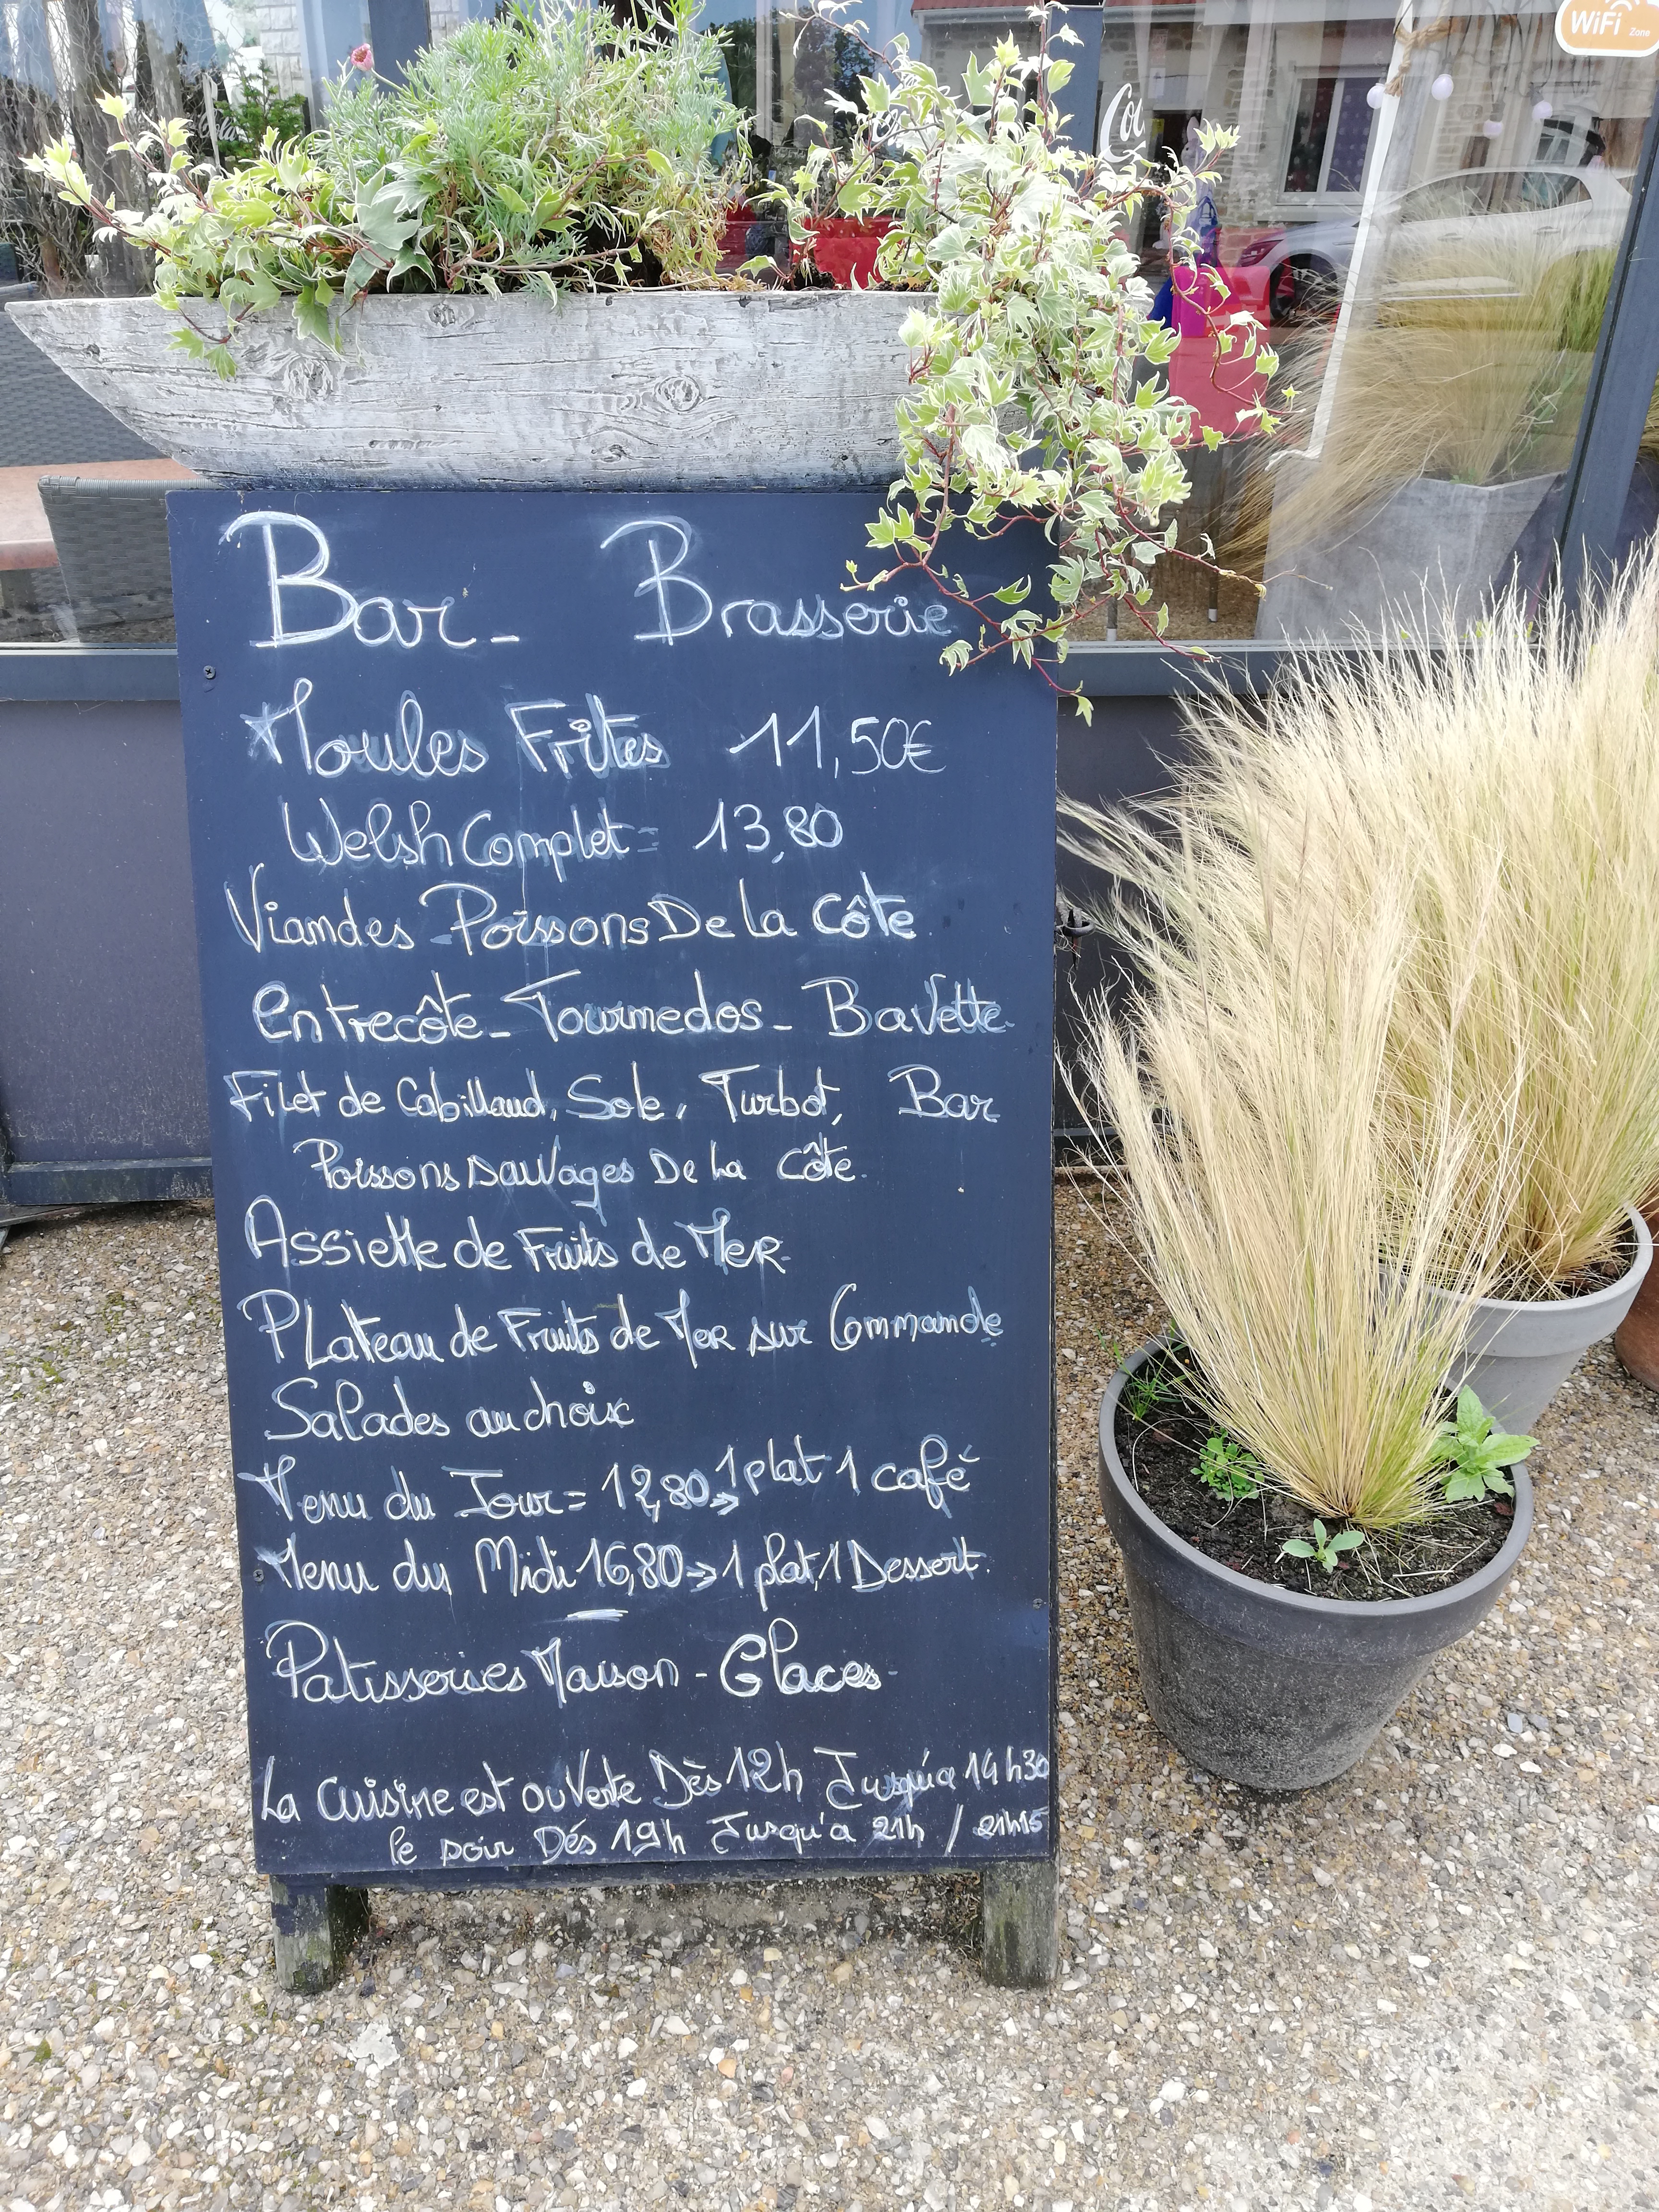 WiFi Zone
Co
Bar - Brasserie
Moules Frites 11,50€
Welsh Complet = 13,80
Viandes Poissons De la Côte.
Entrecôte - Tournedos - Bavette.
Filet de Cabillaud, Sole, Turbot, Bar
Poissons sauvages De La Côte.
Assiette de Fruits de Mer
Plateau de Fruits de Mer sur Commande
Salades au choix
Menu du Jour = 12,80 => 1 plat 1 café
Menu du Midi 16,80 -> 1 plat, 1 Dessert.
Patisseries Maison - Glaces -
La Cuisine est ouVerte Dès 12h Jusqu'a 14h30
le soir Dés 19h Jusqu'a 21h / 21h15